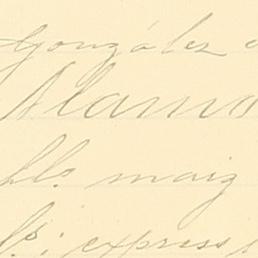 González
Alamo
bls. maiz
express